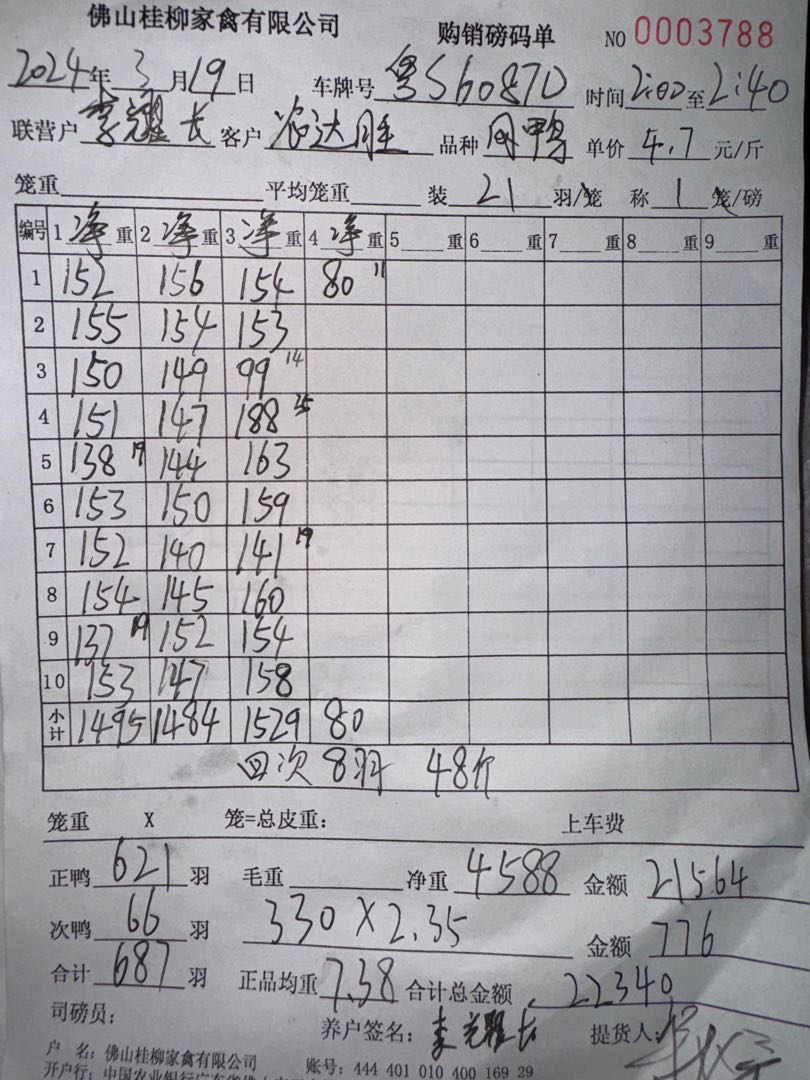 佛山桂柳家禽有限公司 购销磅码单 NO 0003788
2024年3月19日 车牌号 粤S60870 时间2:00至2:40
联营户 李耀长 客户 农达胜 品种 肉鸭 单价 4.7 元/斤
笼重 平均笼重 装 21 羽/笼 称 1 笼/磅
编号 1 净 重 2 净 重 3 净 重 4 净 重 5 重 6 重 7 重 8 重 9 重
1 152 156 154 80 11
2 155 154 153
3 150 149 99 14
4 151 147 188 25
5 138 19 144 163
6 153 150 159
7 152 140 141 19
8 154 145 160
9 137 19 152 154
10 153 147 158
小计 1495 1484 1529 80
回次8羽 48斤
笼重 X 笼=总皮重: 上车费
正鸭 621 羽 毛重 净重 4588 金额 21564
次鸭 66 羽 330 X 2.35 金额 776
合计 687 羽 正品均重 7.38 合计总金额 22340
司磅员: 养户签名: 李耀长 提货人:
户 名: 佛山桂柳家禽有限公司 账号: 444 401 010 400 169 29
开户行: 中国农业银行广东省佛山